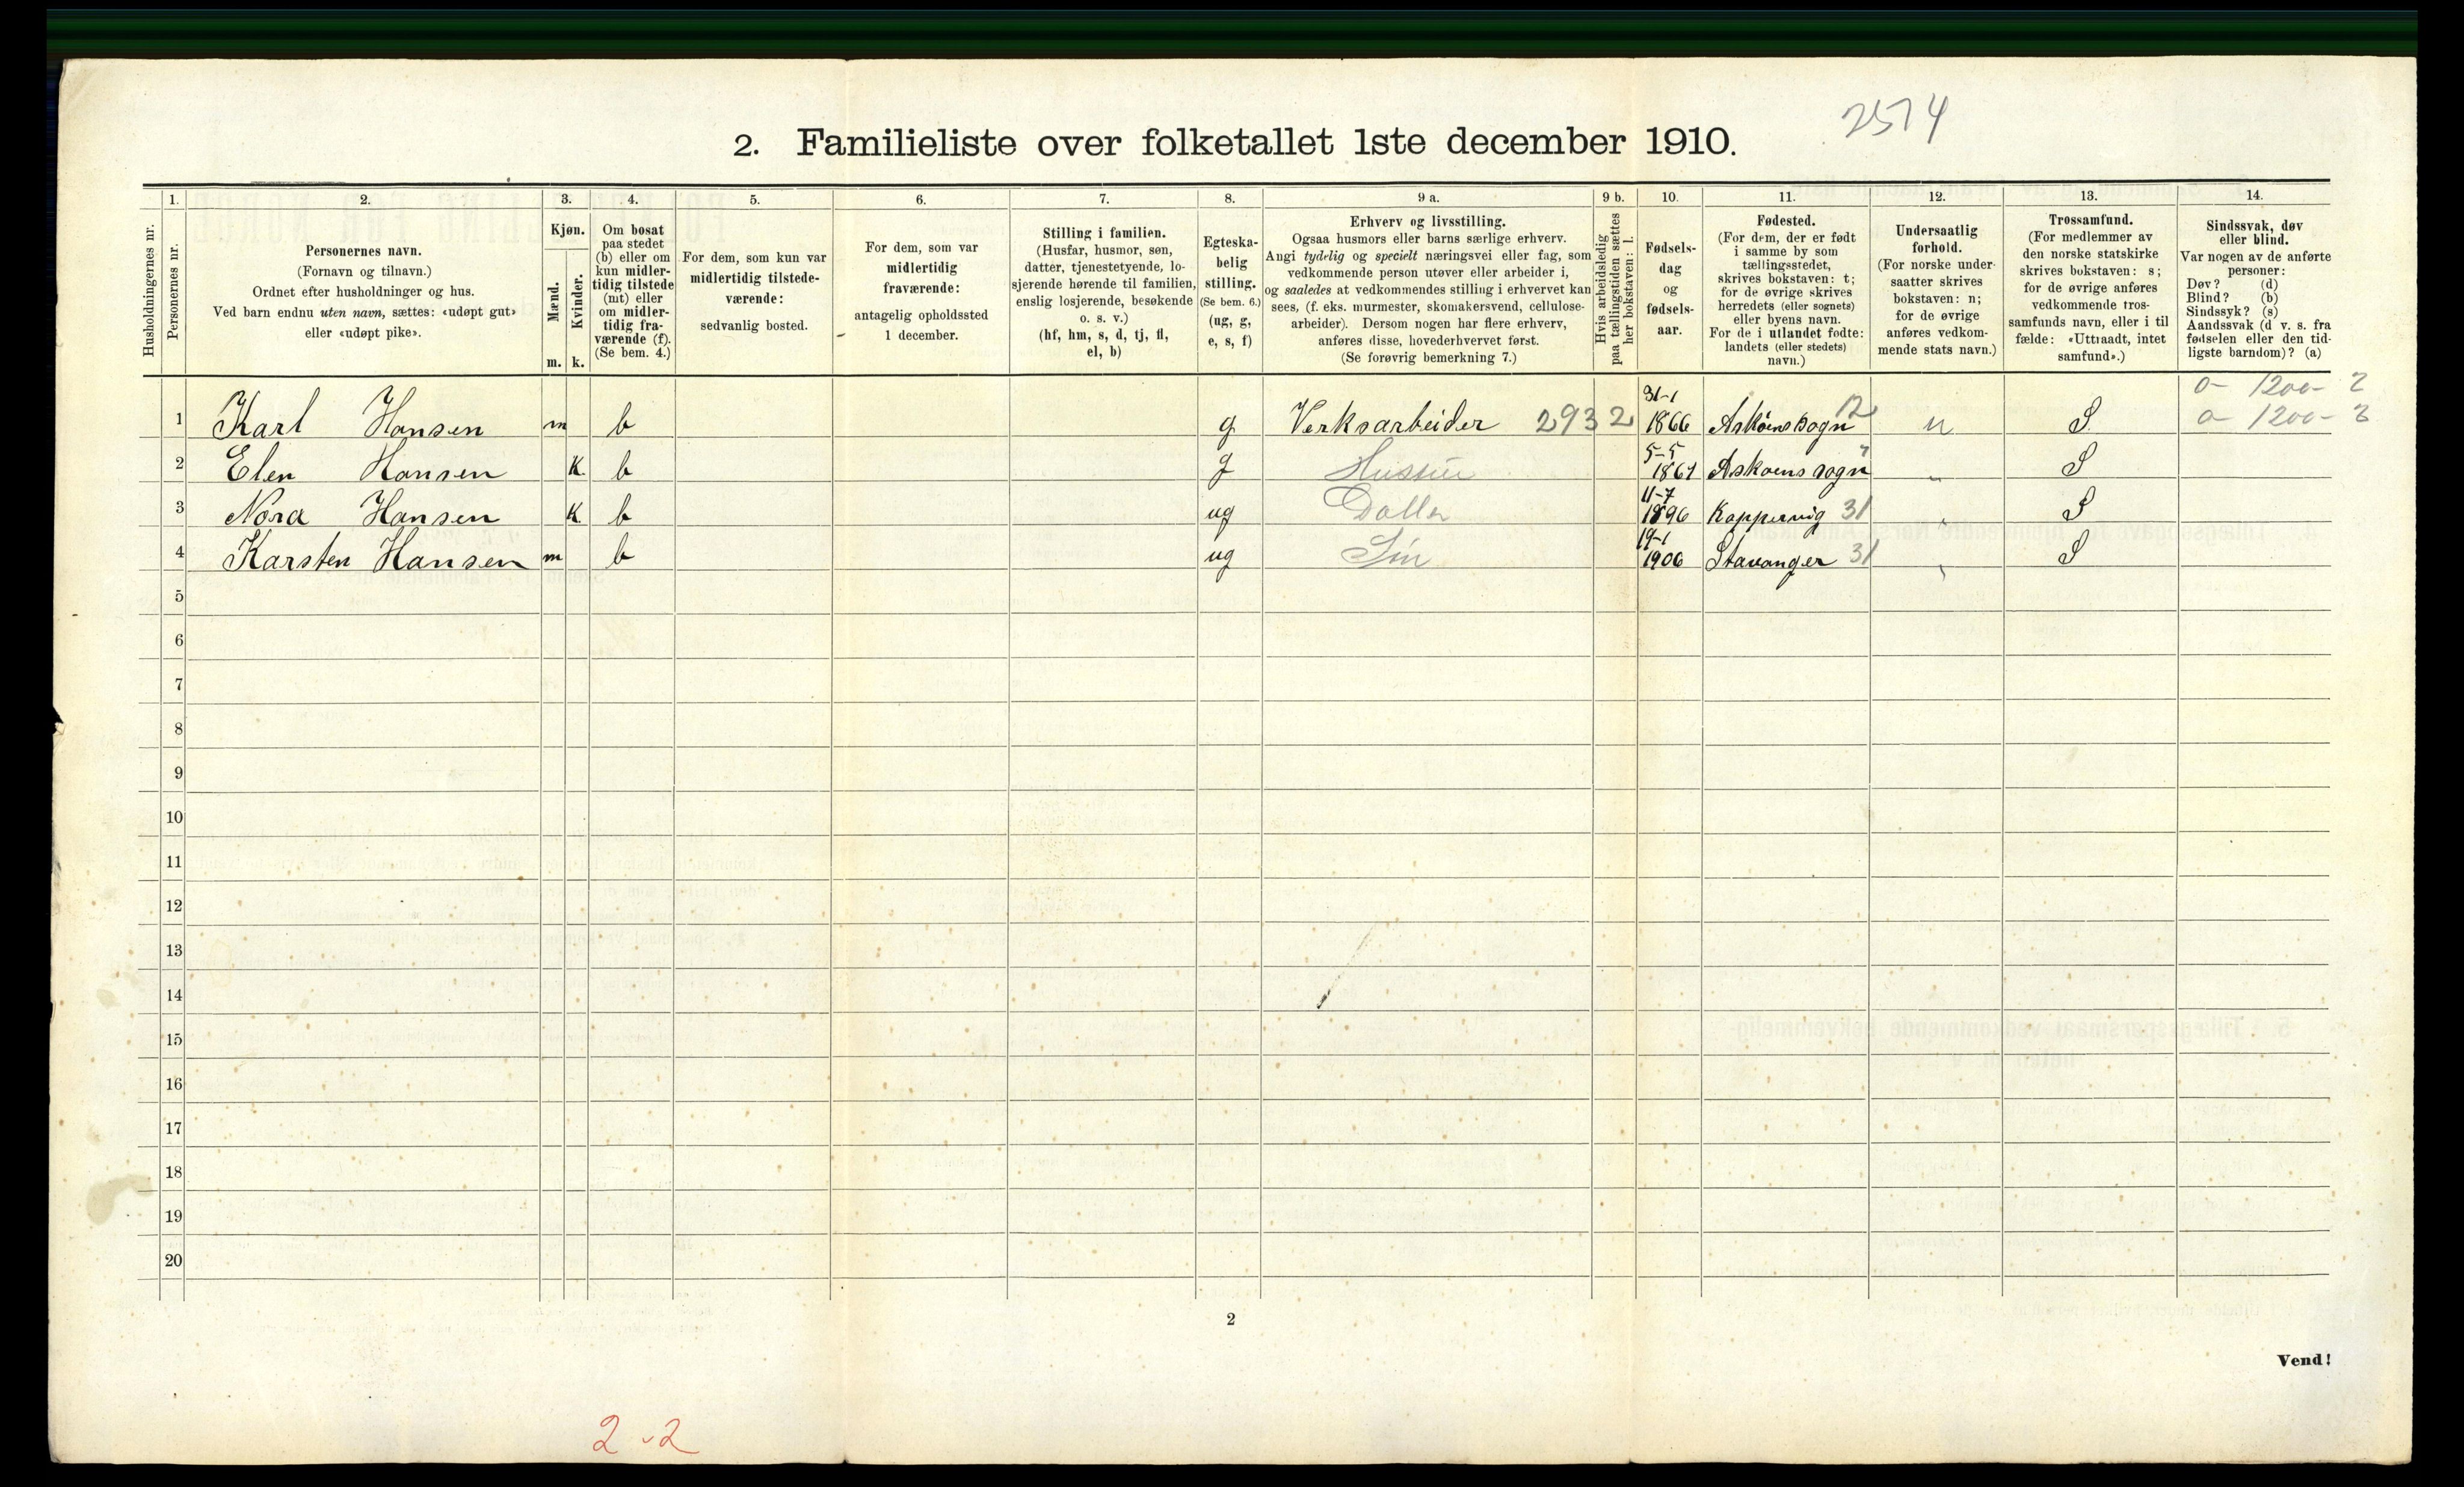 2574
2. Familieliste over folketallet 1ste december 1910.
Husholdningernes nr.
1.
Personernes nr.
2.
Personernes navn.
(Fornavn og tilnavn.)
Ordnet efter husholdninger og hus.
Ved barn endnu uten navn, sættes: «udøpt gut»
eller «udøpt pike».
3.
Kjøn.
Mænd.
m.
Kvinder.
k.
4.
Om bosat
paa stedet
(b) eller om
kun midler-
tidig tilstede
(mt) eller
om midler-
tidig fra-
værende (f).
(Se bem. 4.)
5.
For dem, som kun var
midlertidig tilstede-
værende:
sedvanlig bosted.
6.
For dem, som var
midlertidig
fraværende:
antagelig opholdssted
1 december.
7.
Stilling i familien.
(Husfar, husmor, søn,
datter, tjenestetyende, lo-
sjerende hørende til familien,
enslig losjerende, besøkende
o. s. v.)
(hf, hm, s, d, tj, fl,
el, b)
8.
Egteska-
belig
stilling.
(Se bem. 6.)
(ug, g,
e, s, f)
9 a.
Erhverv og livsstilling.
Ogsaa husmors eller barns særlige erhverv.
Angi tydelig og specielt næringsvei eller fag, som
vedkommende person utøver eller arbeider i,
og saaledes at vedkommendes stilling i erhvervet kan
sees, (f. eks. murmester, skomakersvend, cellulose-
arbeider). Dersom nogen har flere erhverv,
anføres disse, hovederhvervet først.
(Se forøvrig bemerkning 7.)
9 b.
Hvis arbeidsledig
paa tællingstiden sættes
her bokstaven: l.
10.
Fødsels-
dag
og
fødsels-
aar.
11.
Fødested.
(For dem, der er født
i samme by som
tællingsstedet,
skrives bokstaven: t;
for de øvrige skrives
herredets (eller sognets)
eller byens navn.
For de i utlandet fødte:
landets (eller stedets)
navn.)
12.
Undersaatlig
forhold.
(For norske under-
saatter skrives
bokstaven: n;
for de øvrige
anføres vedkom-
mende stats navn.)
13.
Trossamfund.
(For medlemmer av
den norske statskirke
skrives bokstaven: s;
for de øvrige anføres
vedkommende tros-
samfunds navn, eller i til-
fælde: «Uttraadt, intet
samfund».)
14.
Sindssvak, døv
eller blind.
Var nogen av de anførte
personer:
Døv? (d)
Blind? (b)
Sindssyk? (s)
Aandssvak (d v. s. fra
fødselen eller den tid-
ligste barndom)? (a)
0- 1200- 2
1 Karl Hansen m b g Verksarbeider 2932 31-1 1866 Askøens sogn 12 n S 0- 1200- 3
2 Elen Hansen K b g Hustru 5-5 1861 Askøens sogn " " S
3 Nora Hansen K b ug Datter 11-7 1896 Koppervig 31 " S
4 Karsten Hansen m b ug Søn 19-1 1906 Stavanger 31 " S
5
6
7
8
9
10
11
12
13
14
15
16
17
18
19
20
2
Vend!
2-2